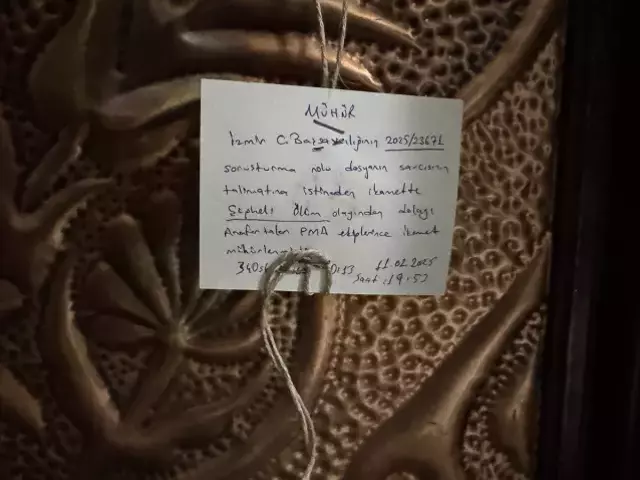 MÜHÜR
İzmir C. Başsavcılığının 2025/23671
soruşturma nolu dosyanın savcısının
talimatına istinaden ikamette
Şüpheli Ölüm olayından dolayı
Anafartalar PMA ekiplerince ikamet
11.01.2025
Saat: 19:53